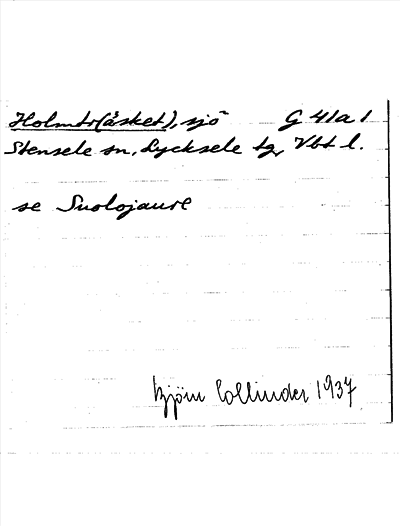 Holmtr(äsket), sjö G 41a 1
Stensele sn, Lycksele tg, Vbt l.
se Suolojaure
Björn Collinder 1937